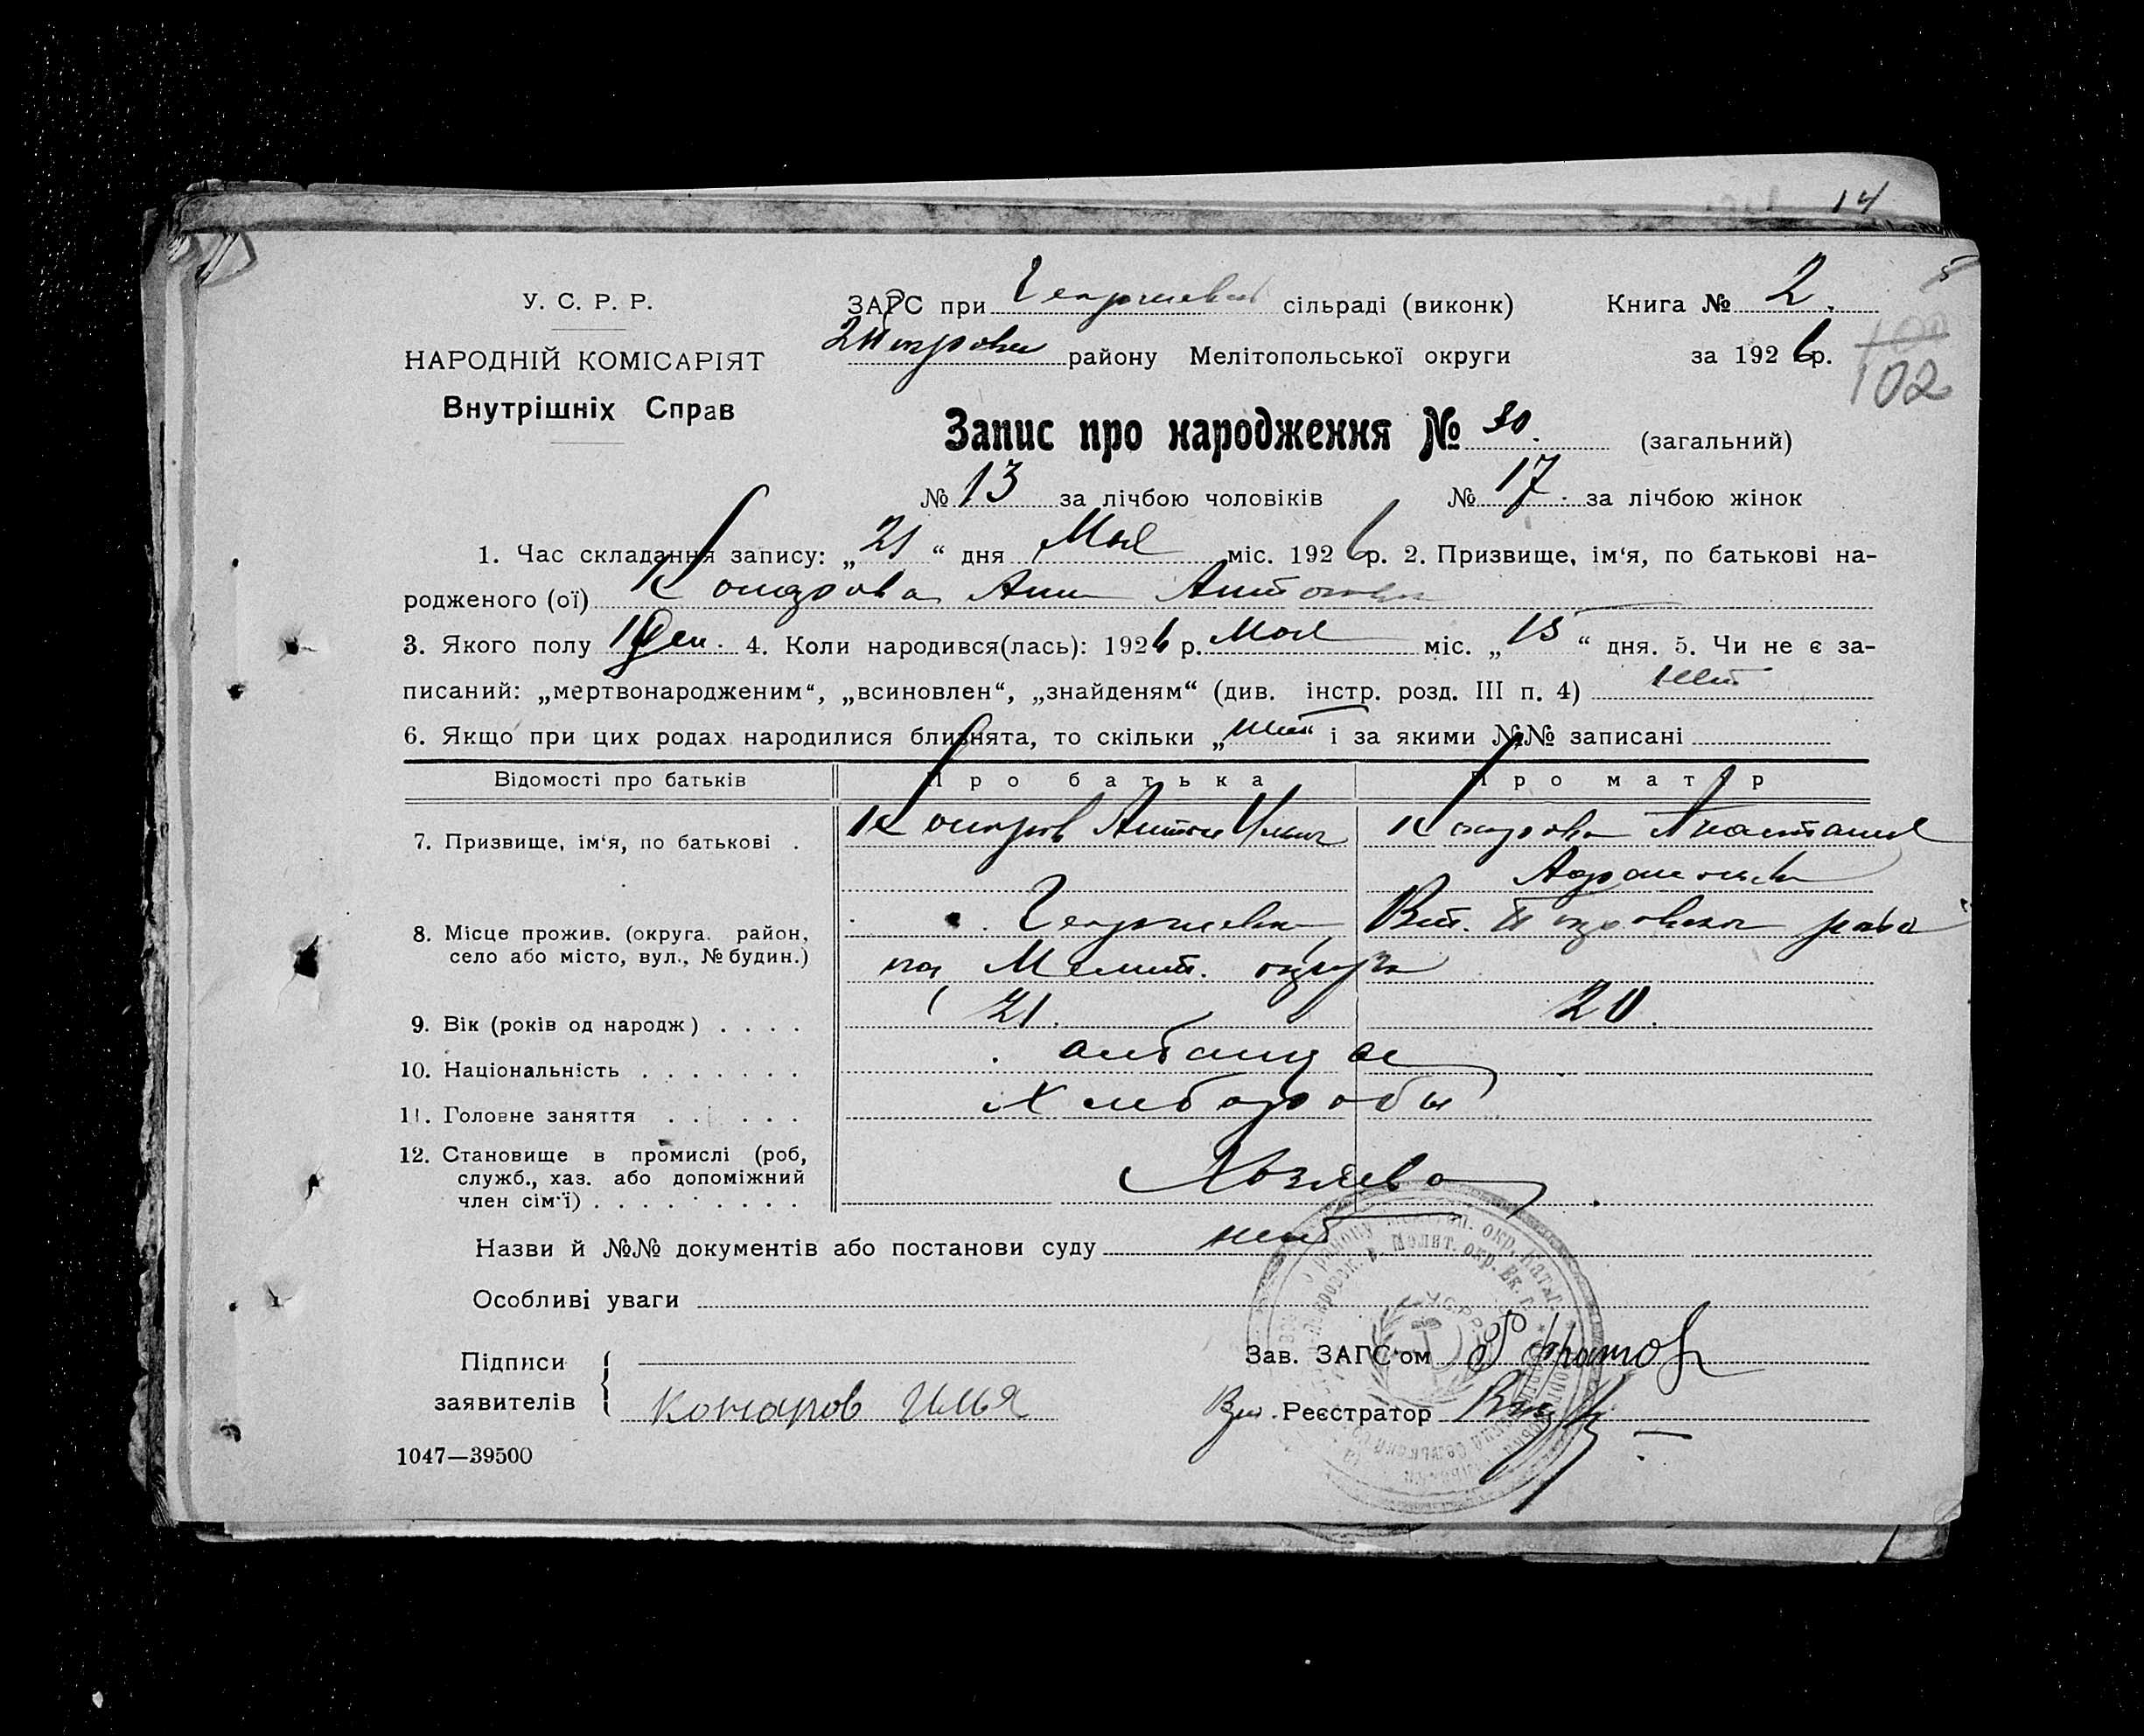 14
У. С. Р. Р.
НАРОДНІЙ КОМІСАРІЯТ
Внутрішніх Справ
ЗАГС при Георгиевской сільраді (виконк)
Книга № 2.
району Мелітопольської округи
за 1926 р.
100
102
Запис про народження № 30. (загальний)
№ 13 за лічбою чоловіків № 17. за лічбою жінок
1. Час складання запису: „21“ дня Мая міс. 1926 р. 2. Призвище, ім‘я, по батькові на-
родженого (ої) Конарова Анна Антоновна
3. Якого полу Жен. 4. Коли народився(лась): 1926 р. Мая міс. „15“ дня. 5. Чи не є за-
писаний: „мертвонародженим“, „всиновлен“, „знайденям“ (див. інстр. розд. III п. 4) нет
6. Якщо при цих родах народилися близнята, то скільки „нет“ і за якими №№ записані
Відомості про батьків Про батька Про матір
7. Призвище, ім‘я, по батькові . Конаров Антон Ильич Конарова Анастасия
8. Місце прожив. (округа. район, село або місто, вул., № будин.) Георгиевка
на Мелит. округа
9. Вік (років од народж) . . . . 21. 20.
10. Національність . . . . . . . албанцы
11. Головне заняття . . . . . . Хлеборобы
12. Становище в промислі (роб, служб., хаз. або допоміжний член сім‘ї) . . . . . . . . . Хозяева
Назви й №№ документів або постанови суду нет
Особливі уваги
Підписи
заявителів
Конаров Илья
Зав. ЗАГС‘ом
Реєстратор
1047—39500